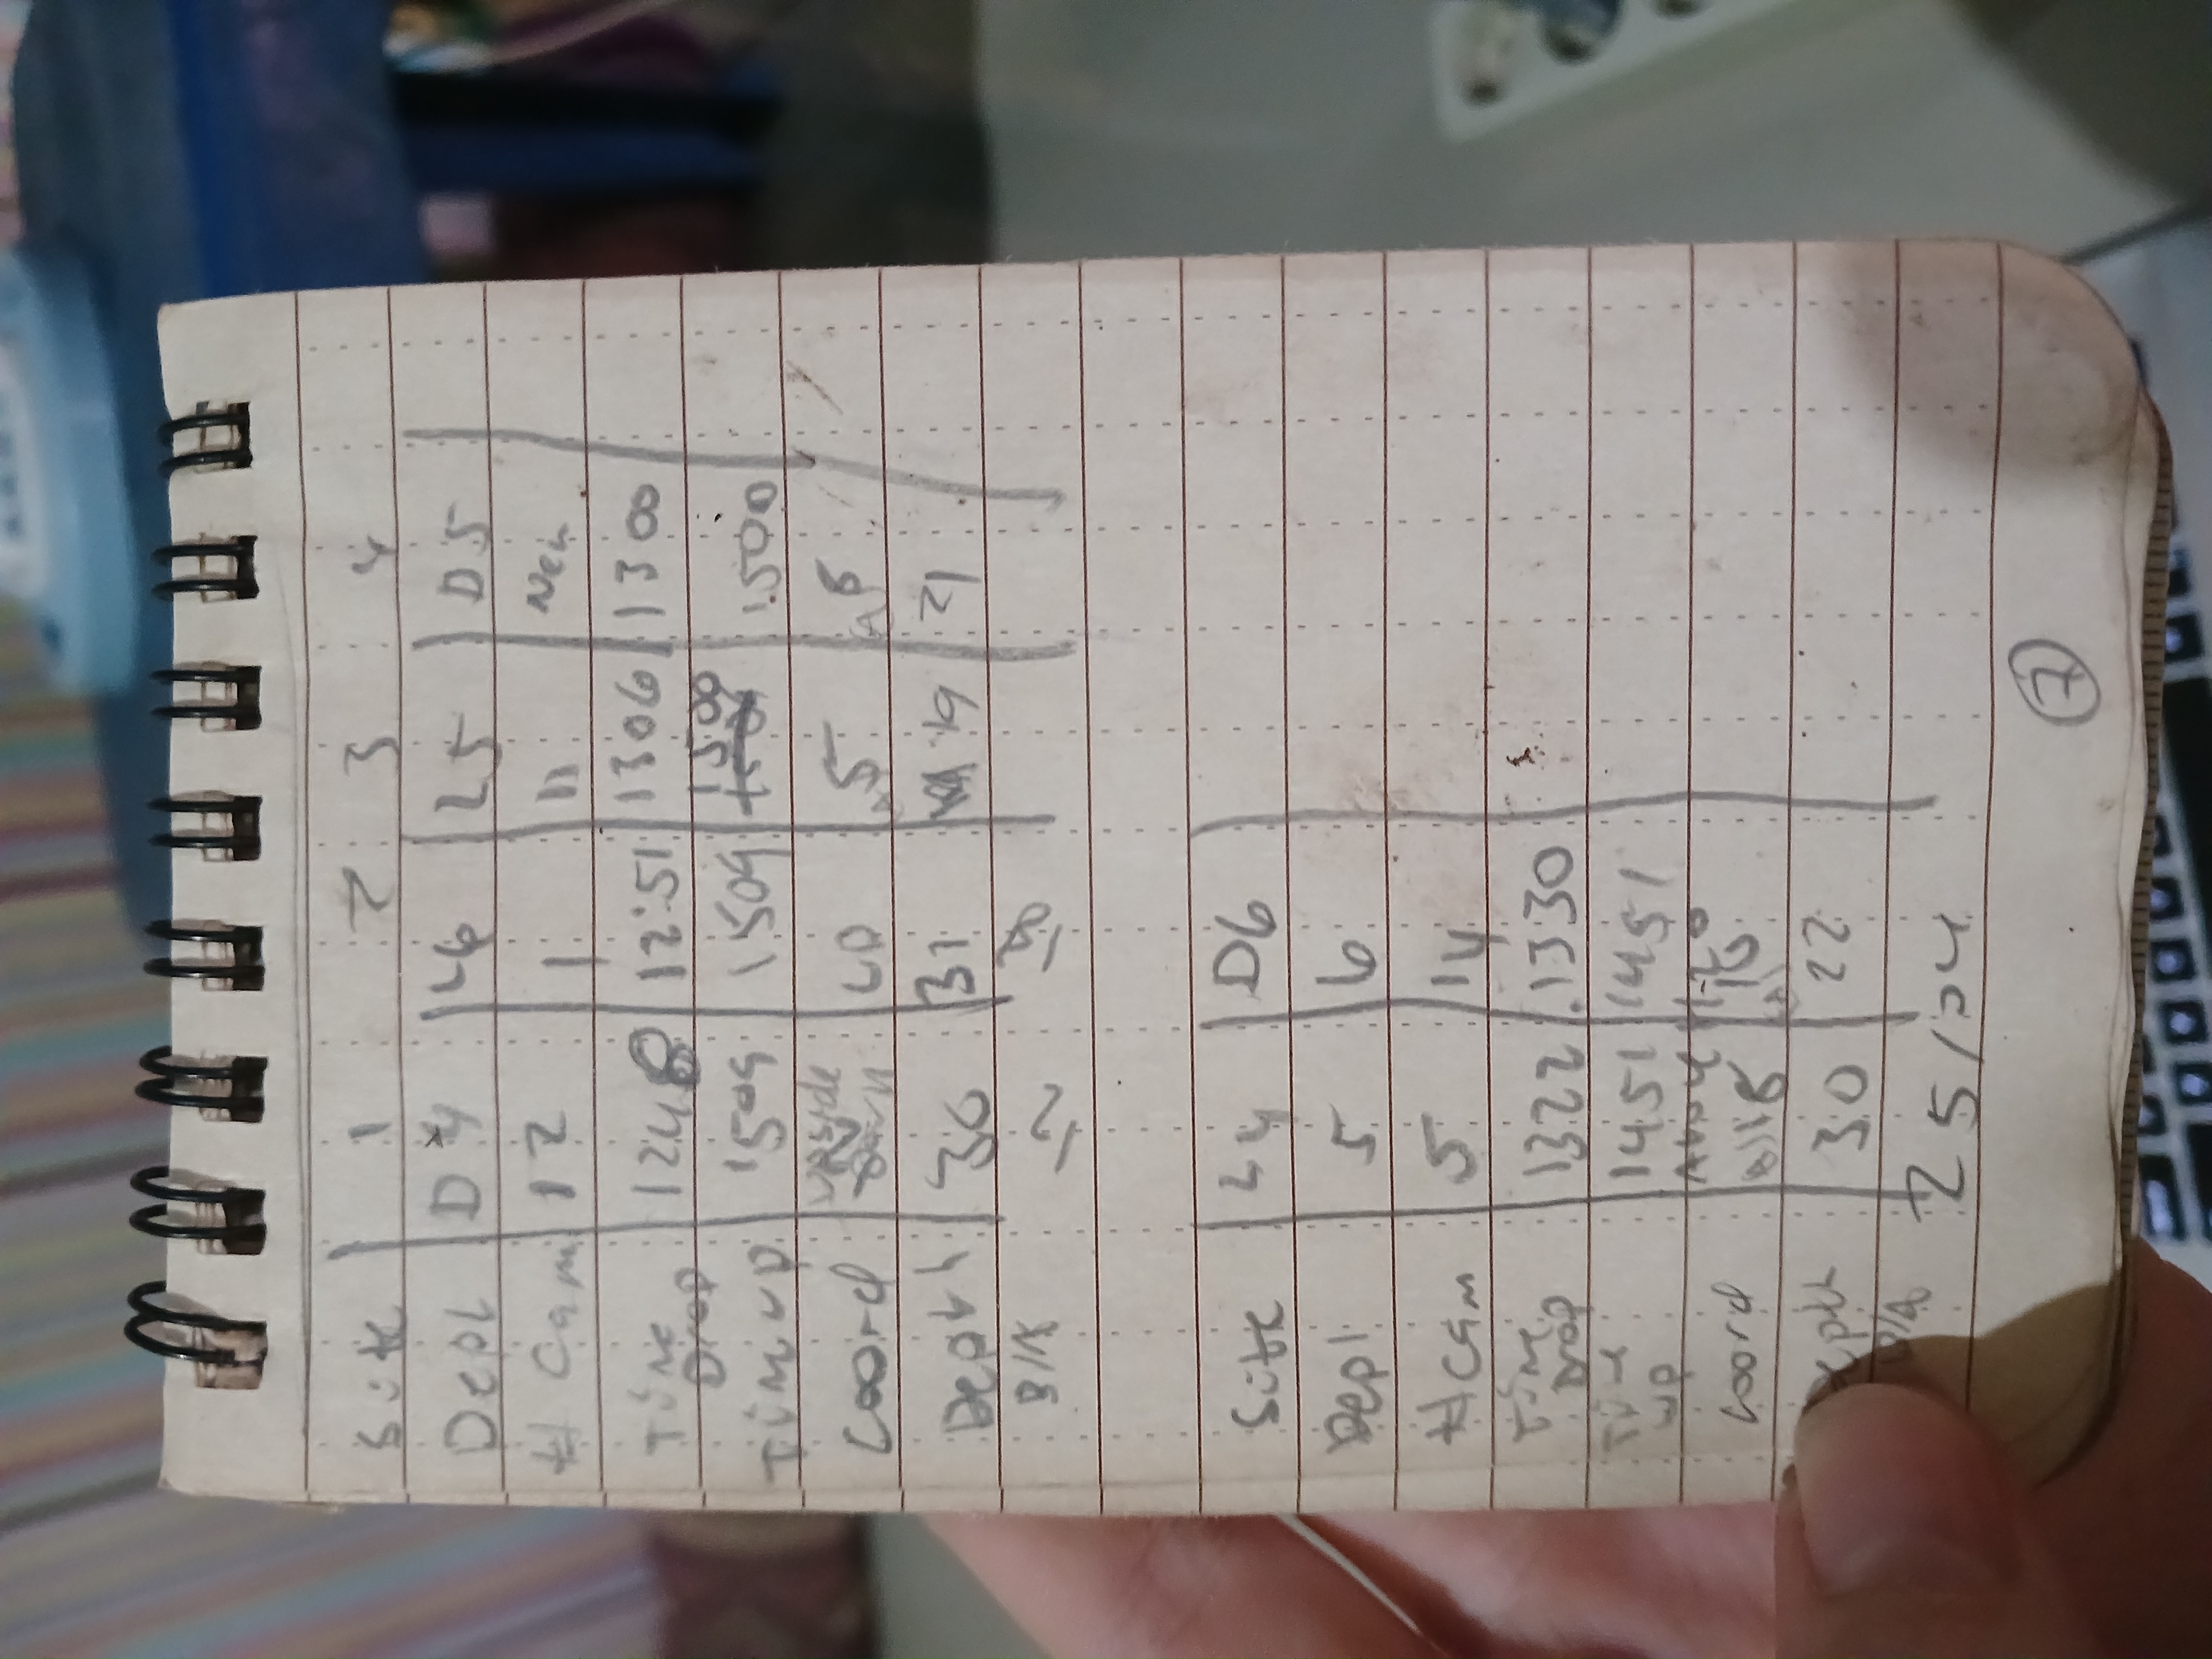 Site 1 2 3 4
Depl D4 L6 L5 D5
# Cam 12 1 11 New
Time Drop 1248 12:51 1306 1300
1500
Time up 1509 1509 1500
Coord upside down UD 5 8
Depth 30 31 19 21
B/A 12 18
Site L4 D6
Depl 5 6
# Cam 5 14
Time Drop 1322 1330
Time up 1451 1451
Coord
Depth 30 22
25/04
7